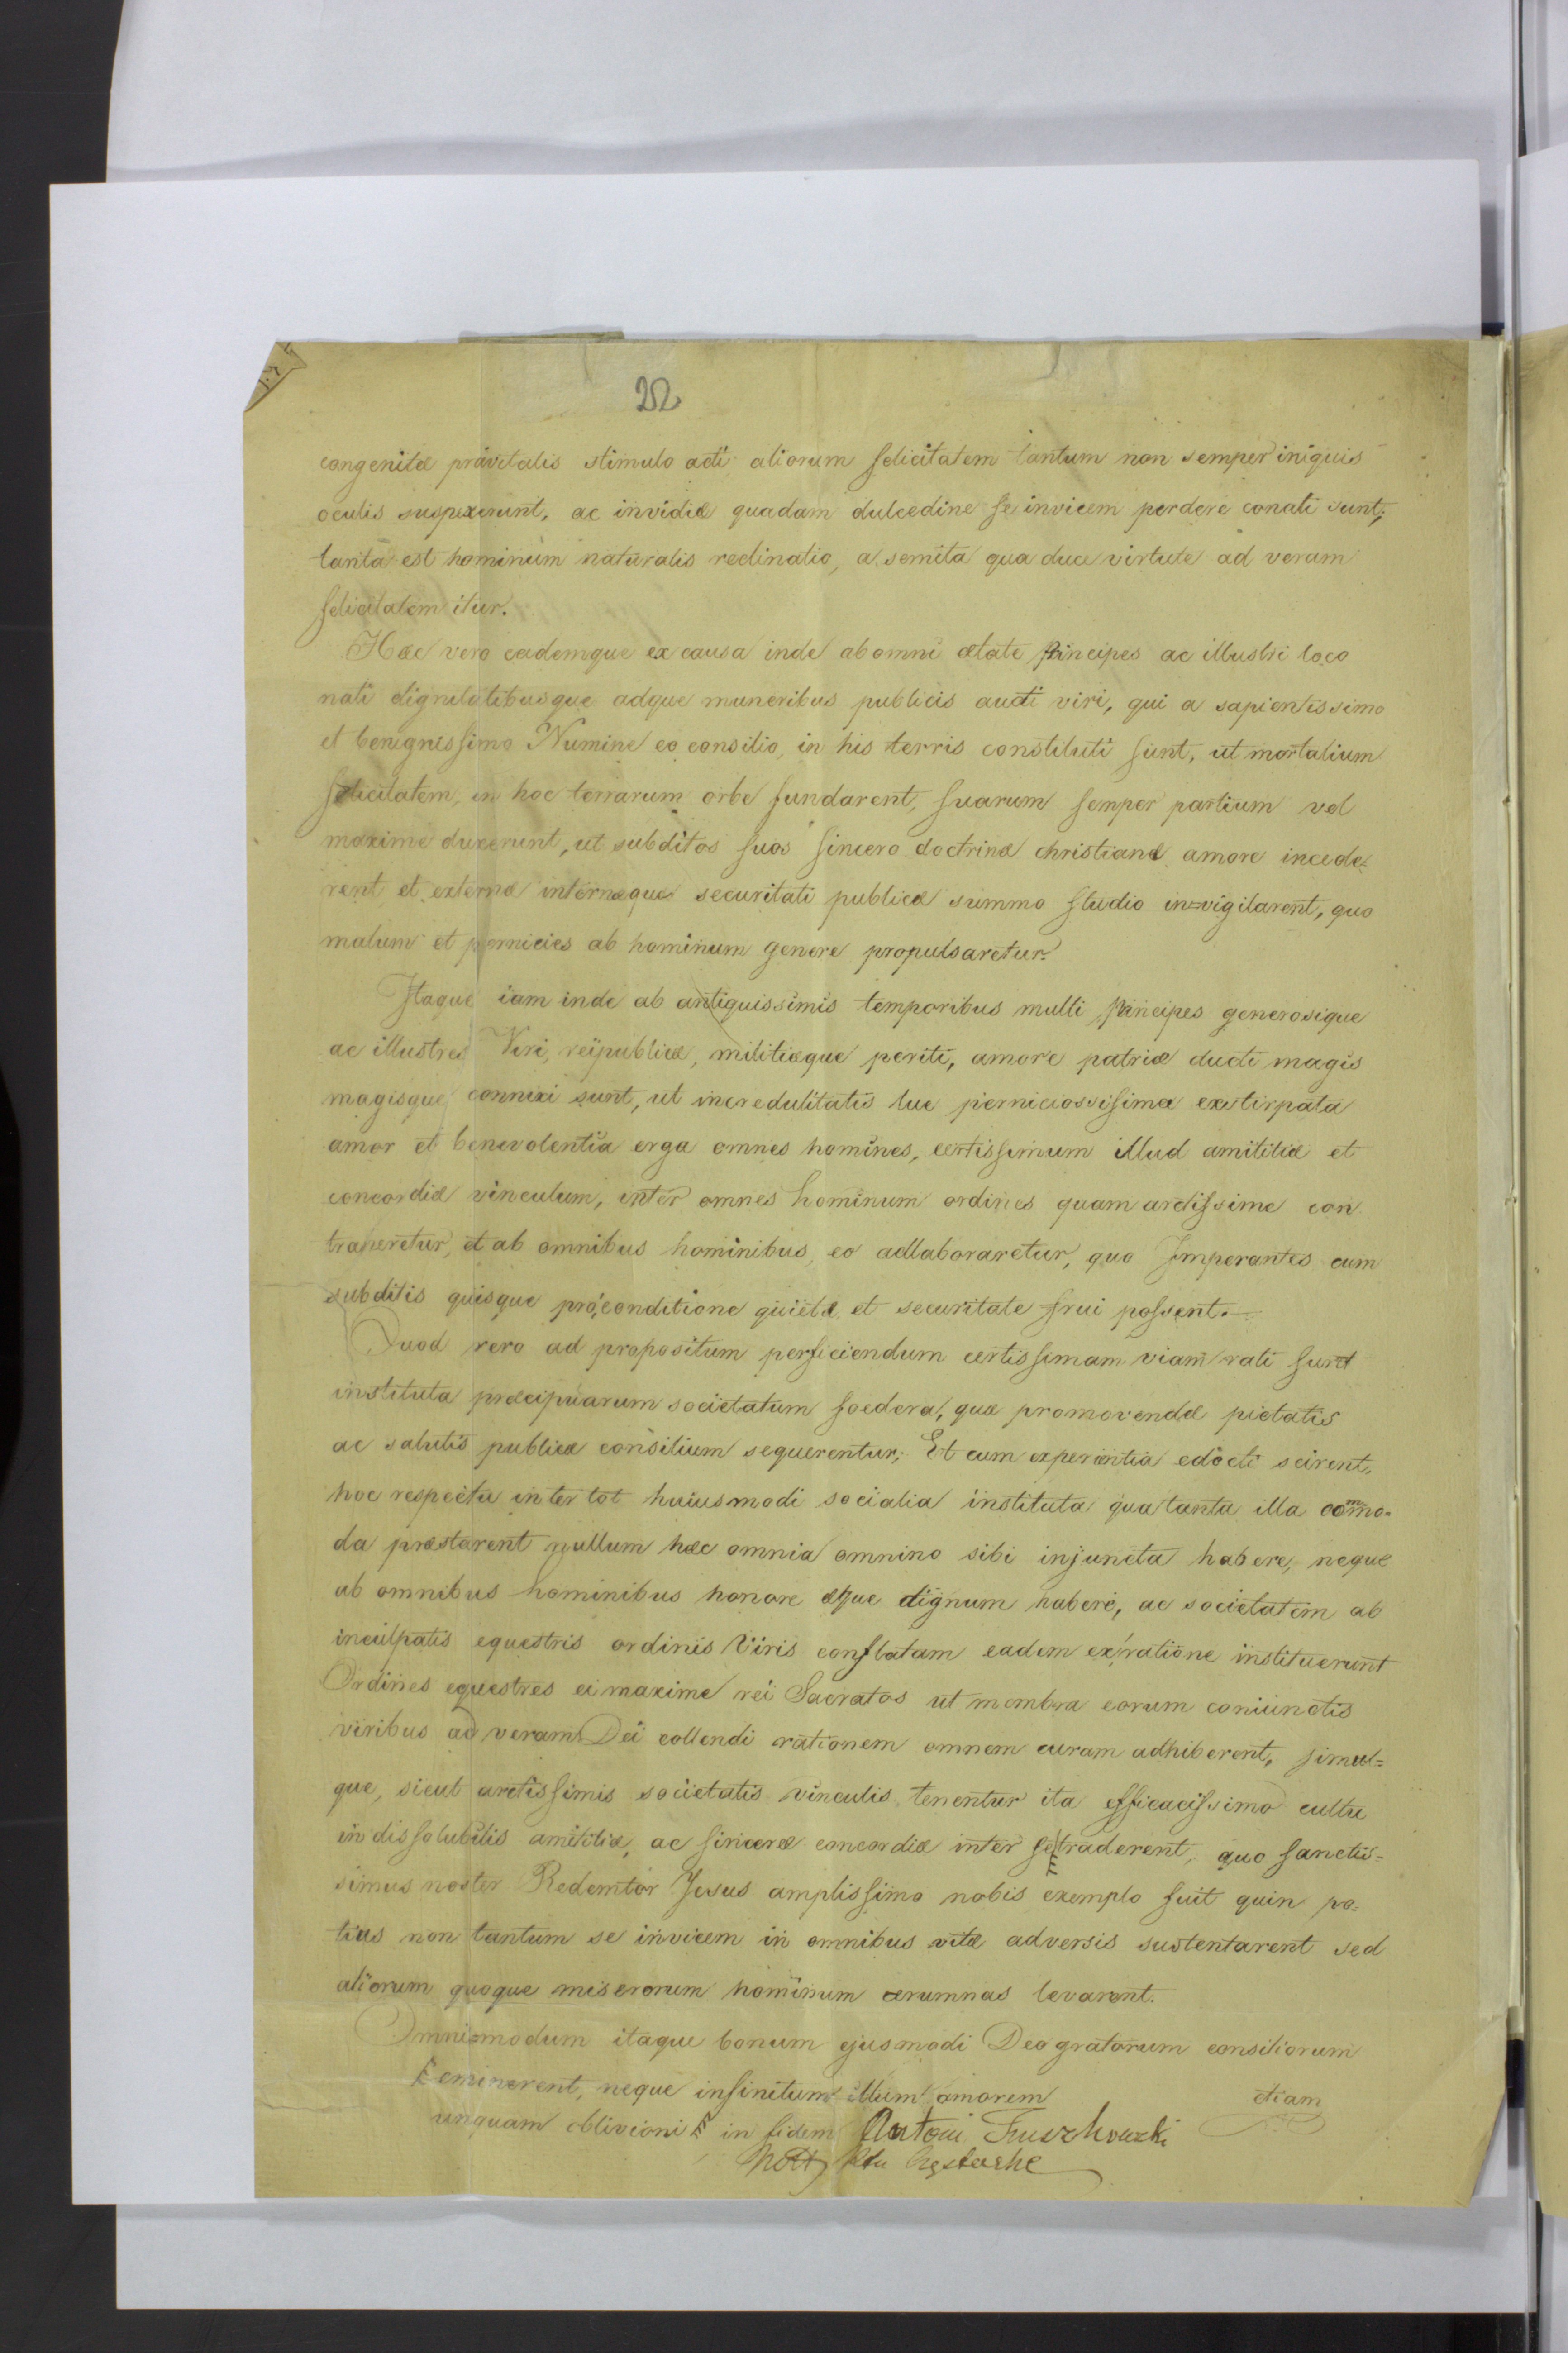 congenitæ pravitatis stimulo acti aliorum felicitatem tantum non semper iniquis
oculis suspexerunt, ac invidiæ quadam dulcedine se invicem perdere conati sunt;
tanta est hominum naturalis reclinatio, a semita qua duce virtute ad veram
felicitatem itur.
Hæc vero eademque ex causa inde ab omni ætate principes ac illustri loco
nati dignitatibusque adque muneribus publicis aucti viri, qui a sapientissimo
et benignissimo Numine eo consilio, in his terris constituti sunt, ut mortalium
felicitatem, in hoc terrarum orbe fundarent, suarum semper partium vel
maxime duxerunt, ut subditos suos sincero doctrinæ christianæ amore incede-
rent, et externæ internæque securitati publicæ summo studio in=vigilarent, quo
malum et pernicies ab hominum genere propulsaretur.
Itaque iam inde ab antiquissimis temporibus multi principes generosique
ac illustres Viri, reipublicæ, militiæque periti, amore patriæ ducti magis
magisque connixi sunt, ut incredulitatis lue perniciossisima exstirpata
amor et benevolentia erga omnes homines, certissimum illud amititiæ et
concordiæ vinculum, inter omnes hominum ordines quam arctissime con
traheretur, et ab omnibus hominibus, eo adlaboraretur, quo Imperantes cum
subditis quisque pro conditione quiete et securitate frui possent.
Quod vero ad propositum perficiendum certissimam viam rati sunt
instituta præcipuarum societatum foedera, quæ promovendæ pietatis
ac salutis publicæ consilium sequerentur; Et cum experientia edocti scirent,
hoc respectu inter tot huiusmodi socialia instituta qua tanta illa commo-
da præstarent nullum hæc omnia omnino sibi injuncta habere, neque
ab omnibus hominibus honore æque dignum haberi, ac societatem ab
inculpatis equestris ordinis Viris conflatam eadem ex ratione instituerunt
Ordines equestres ei maxime rei Sacratos ut membra eorum coniunctis
viribus ad veram Dei collendi rationem omnem curam adhiberent, simul=
que, sicut arctissimis societatis vinculis tenentur ita efficacissimo cultu
indissolubilis amititiæ, ac sinceræ concordiæ inter se traderent, quo sanctis=
simus noster Redemtor Jesus amplissimo nobis exemplo fuit quin po-
tius non tantum se invicem in omnibus vitæ adversis sustentarent sed
aliorum quoque miserorum hominum ærumnas levarent.
Omnimodum itaque bonum ejusmodi Deo gratorum consiliorum
eminerent, neque infinitum illum amorem etiam
unquam oblivioni in fidem Antoni